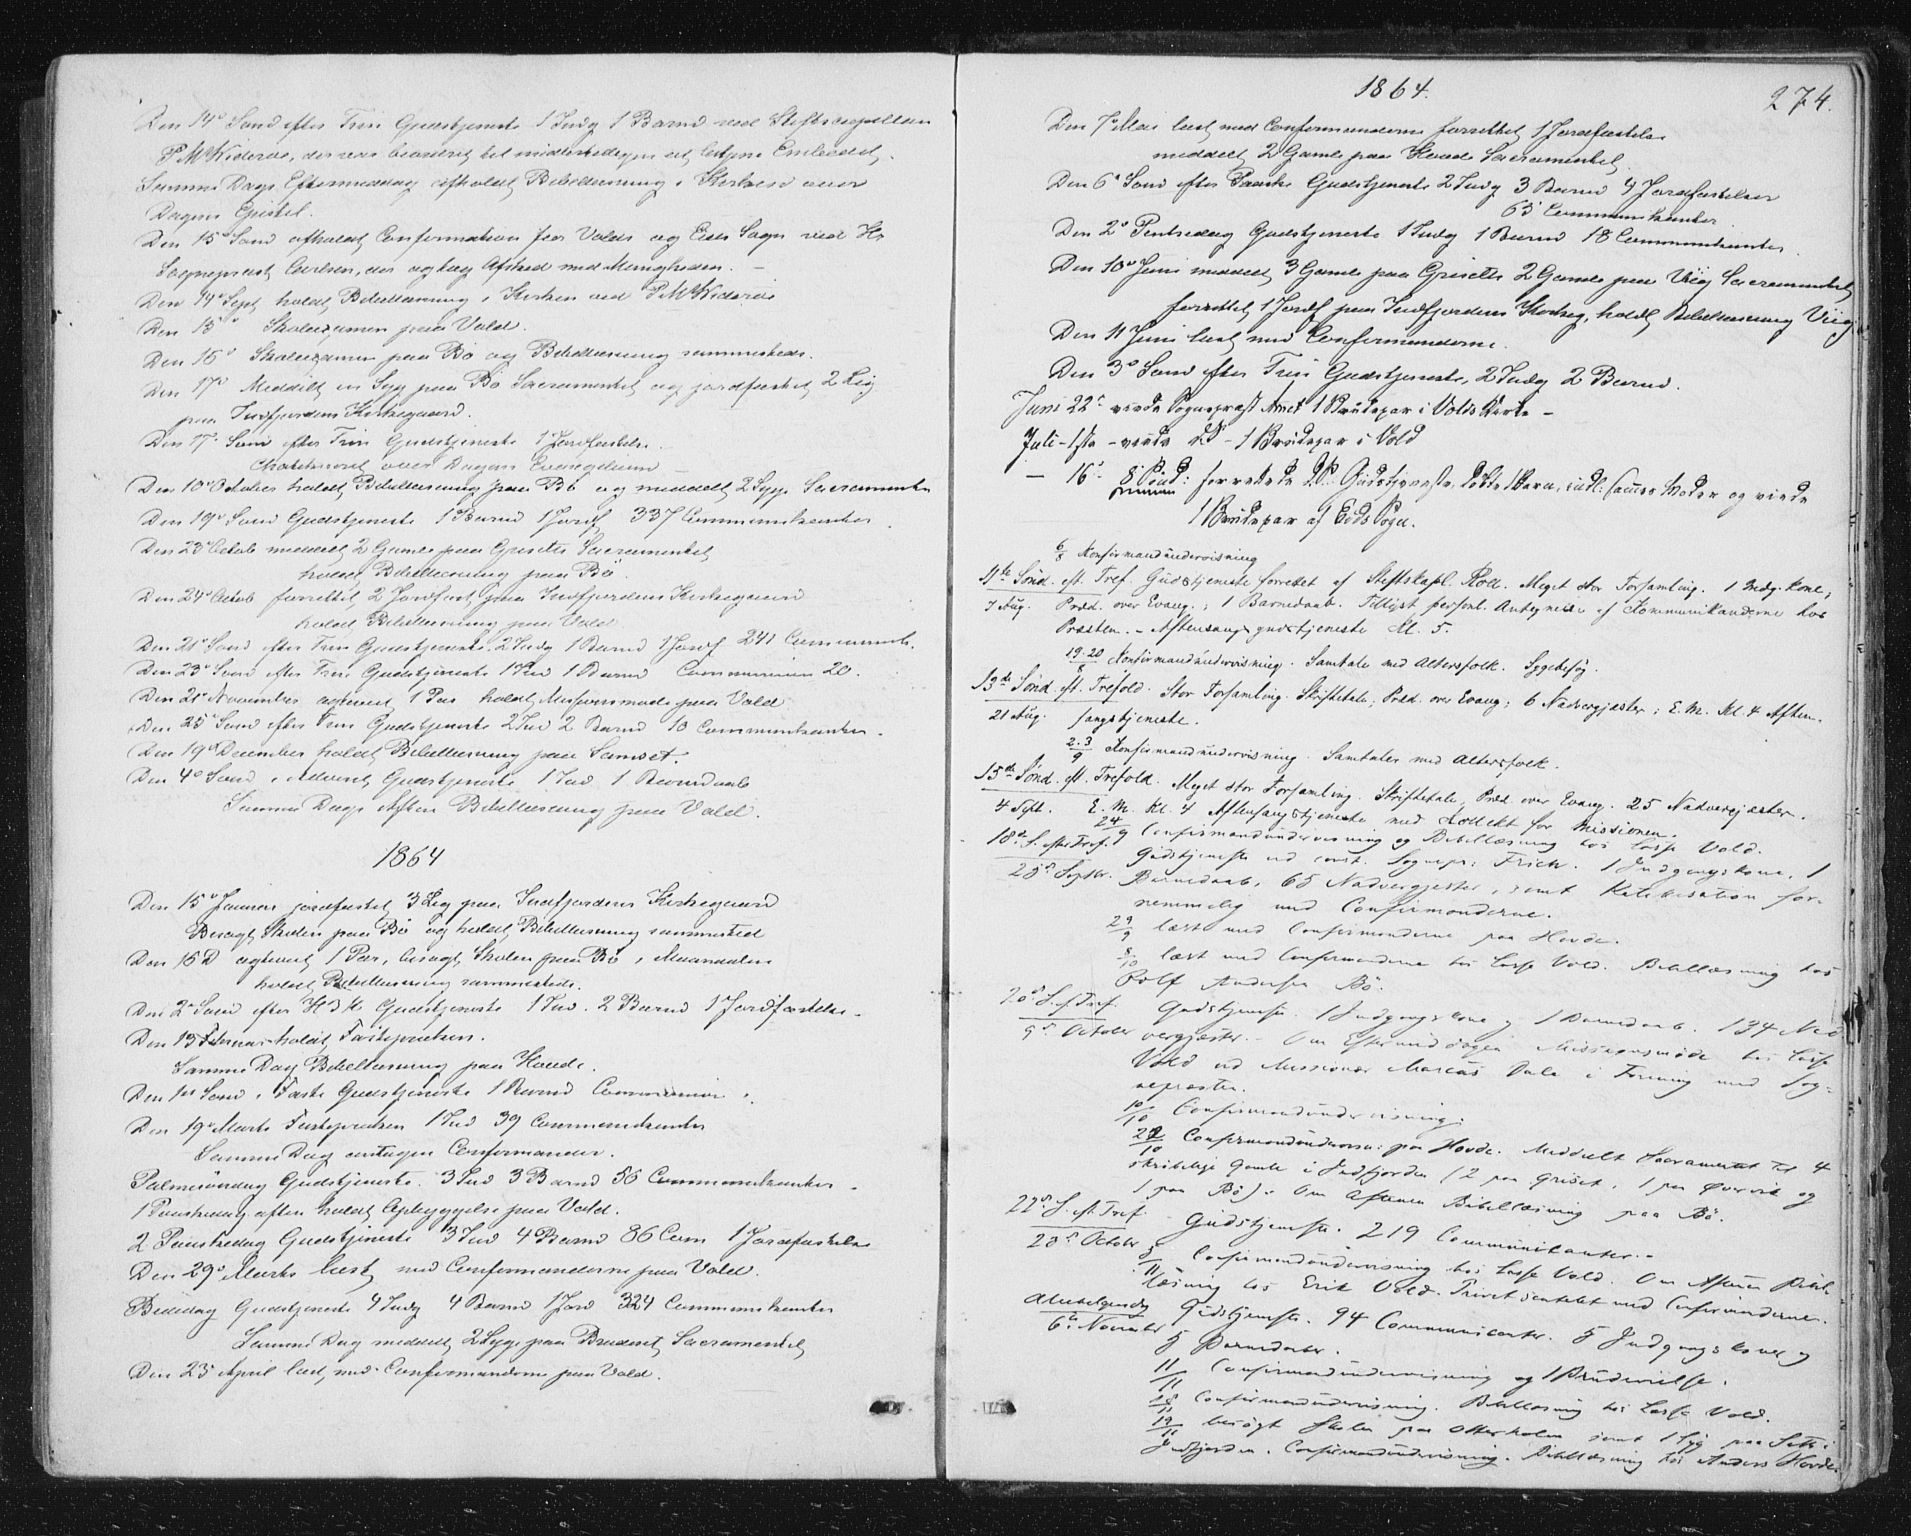 Den 14° Sønd efter Trin Gudstjeneste 1 Indg 1 Barnd ved Stiftscapellan
P. M. Widerøe, der var beordret til midlertidigen at betjene Embedet.
Samme Dags Eftermiddag afholdt Bibellæsning i Kirken over
Dagens Epistel.
Den 15° Sønd afholdt Confirmation for Volds og Eids Sogn ved Hr
Sognepræst Carlsen, der og tog Afsked med Menigheden. —
Den 14° Sept. holdt Bibellæsning i Kirken ved P. M. Widerøe
Den 15° Skoleexamen paa Vold.
Den 16° Skoleexamen paa Bø og Bibellæsning sammesteds.
Den 17° Meddelt en Syg paa Bø Sacramentet og jordfæstet 2 Lig
paa Indfjordens Kirkegaard.
Den 17. Sønd efter Trin Gudstjeneste 1 Jordfæstelse
Chatechiseret over Dagens Evangelium —
Den 10° October holdt Bibellæsning paa Bø og meddelt 2 Syge Sacramentet
Den 19° Sønd Gudstjeneste 1 Barnd 1 Jordf 337 Communikanter.
Den 23° Octob meddelt 2 Gamle paa Grisetts Sacramentet
holdt Bibellæsning paa Bø.
Den 24° Octob forrettet 2 Jordfæst. paa Indfjordens Kirkegaard
holdt Bibellæsning paa Vold
Den 21° Sønd efter Trin Gudstjeneste. 2 Indg 1 Barnd 1 Jordf 241 Communik.
Den 23° Sønd efter Trin Gudstjeneste 1 Ind 1 Barnd Communion 20.
Den 21° November ægteviet 1 Par holdt Missionsmøde paa Vold
Den 25° Sønd efter Trin Gudstjeneste 2 Ind 2 Barnd 10 Communikanter.
Den 19° December holdt Bibellæsning paa Samset.
Den 4° Sønd i Advent, Gudstjeneste 1 Ind 1 Barndaab
Samme Dags Aften Bibellæsning paa Vold.
1864
Den 15° Januar jordfæstet 3 Lig paa Indfjordens Kirkegaard
Besøgt Skolen paa Bø og holdt Bibellæsning sammested
Den 16 D ægteviet 1 Par, besøgt Skolen paa Bø i Maandalen
holdt Bibellæsning sammesteds.
Den 2° Sønd efter H 3 K Gudstjeneste 1 Ind. 2 Barnd 1 Jordfæstelse.
Den 13 Februar holdt Fasteprædiken.
Samme Dag Bibellæsning paa Hovde.
Den 1ste Sønd i Faste Gudstjeneste 1 Barnd Communion
Den 19° Marts Fasteprædiken 1 Ind 39 Communikanter
Samme Dag antagen Confirmander.
Palmesøndag Gudstjeneste. 3 Ind 3 Barnd 56 Communikanter.
1 Paaskedag aften holdt Opbyggelse paa Vold.
2 Paaskedag Gudstjeneste 3 Ind 4 Barnd 86 Com 1 Jordfæstelse
Den 29° Marts læst med Confirmanderne paa Vold.
Bededag Gudstjeneste 4 Indg 4 Barnd 1 Jord 324 Communikanter
Samme Dag meddelt 2 Syge paa Sacramentet
Den 23° April læst med Confirmanderne paa Vold.
1864.
274.
Den 7° Mai læst med Confirmanderne forrettet 1 Jordfæstelse
meddelt 2 Gamle paa Hovde Sacramentet.
Den 6° Sønd efter Paaske Gudstjeneste 2 Indg 3 Barnd 4 Jordfæstelser
65 Communikanter
Den 2° Pintsedag Gudstjeneste 1 Indg 1 Barnd 18 Communikanter
Den 10° Juni meddelt 3 Gamle paa Grisetts 2 Gamle paa Viig Sacramentet
forrettet 1 Jordf paa Indfjordens Kirkeg, holdt Bibellæsning Viig
Den 11 Juni læst med Confirmanderne.
Den 3° Sønd efter Trin Gudstjeneste, 2 Indg 2 Barnd.
Juni 22° viede Sognepræst 1 Brudepar i Volds Kirke —
Juli – 1ste – viede – 1 Brudepar i Vold
— 16° 8° Sønd: forrettede Gudstjeneste, døbte 1 Barn, indl: sammes Moder og viede
1 Brudepar af Eids Sogn.
6/8 Konfirmandundervisning
11te Sønd. eft. Tref. Gudstjeneste forrettet af Stiftskapl. Koll. Meget stor Forsamling. 1 Indg. kone;
7 Aug. Præd. over Evang.; 1 Barnedaab. Tillyst personl. Antegnelse af Kommunikanderne hos
Præsten. – Aftensangsgudstjeneste Kl. 5.
19.20/8 Konfirmandundervisning. Samtale med Altersfolk. Sygebesøg.
13de Sønd. eft. Trefold. Stor Forsamling. Skriftetale, Præd. over Evang; 6 Nadvergjæster; E. M. Kl. 4 Aften-
21 Aug. sangstjeneste.
2.3/9 Konfirmandundervisning. Samtaler med Altersfolk.
15de Sønd. eft. Trefold. Meget stor Forsamling. Skriftetale, Præd. over Evang. 25 Nadvergjæster.
4 Sept. E. M. Kl. 4 Aftensangstjeneste med Kollekt for Missionen.
24/9 Confirmandundervisning og Bibellæsning hos Lasse Vold.
18de S. efter Tref. Gudstjeneste ved const. Sognepr: Frich. 1 Indgangskone, 1
25de Septbr. Barnedaab, 65 Nadvergjæster, samt Katekisation for-
nemmelig med Confirmanderne.
29/9 læst med Confirmanderne paa Hovde.
8/10 læst med Confirmanderne hos Lasse Vold. Bibellæsning hos
Rolf Andersen Bø.
20de S. e. Tref. Gudstjeneste. 1 Indgangskone og 1 Barnedaab. 134 Nad
9de October vergjæster. – Om Eftermiddagen Missionsmøde hos Lasse
Vold ved Missionær Marcus Dale i Forening med Sog-
nepræsten.
10/10 Confirmandundervisning.
22/10 Confirmandunderv: paa Hovde. Meddelt Sacramentet til 4
skrøbelige Gamle i Indfjorden (2 paa Griset, 1 paa Øvervik og
1 paa Bø). Om Aftenen Bibellæsning paa Bø.
22de S. eft. Tref. Gudstjeneste. 219 Communikanter. –
23de October
5/11 Confirmandundervisning hos Lasse Vold. Om Aftenen Bibel-
læsning hos Erik Vold. Privat samtalet med Confirmanderne.
Allehelgensdg Gudstjeneste. 94 Communicanter. 5 Indgangskoner og
6te November 5 Barnedaab.
11/11 Confirmandundervisning og 1 Brudevielse.
18/11 Confirmandundervisning. Bibellæsning hos Lasse Vold.
19/11 besøgt Skolen paa Otterholm samt 1 Syg paa Sæt i
Indfjorden. Confirmandundervisning. Bibellæsning hos Anders Hovde.